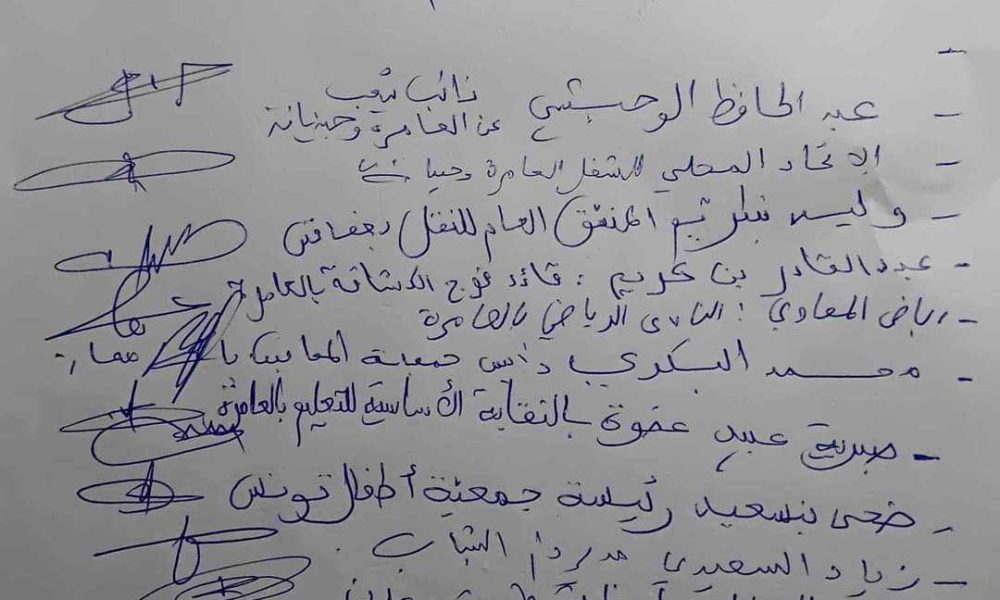 - عبد الحافظ الوحيشي نائب شعب
عن العامرة وجبنيانة
- الاتحاد المحلي للشغل العامرة وجبنيانة
- وليد المنسق العام للنقل بصفاقس
- عبد القادر بن كريم : قائد فوج الكشافة بالعامرة
- رياض المعاوي : النادي الرياضي بالعامرة
- محمد البكري رئيس جمعية
- صبرية عبيد عضوة بالنقابة الأساسية للتعليم بالعامرة
- ضحى بنسعيد رئيسة جمعية أطفال تونس
- زياد السعيدي مدير دار الشباب .